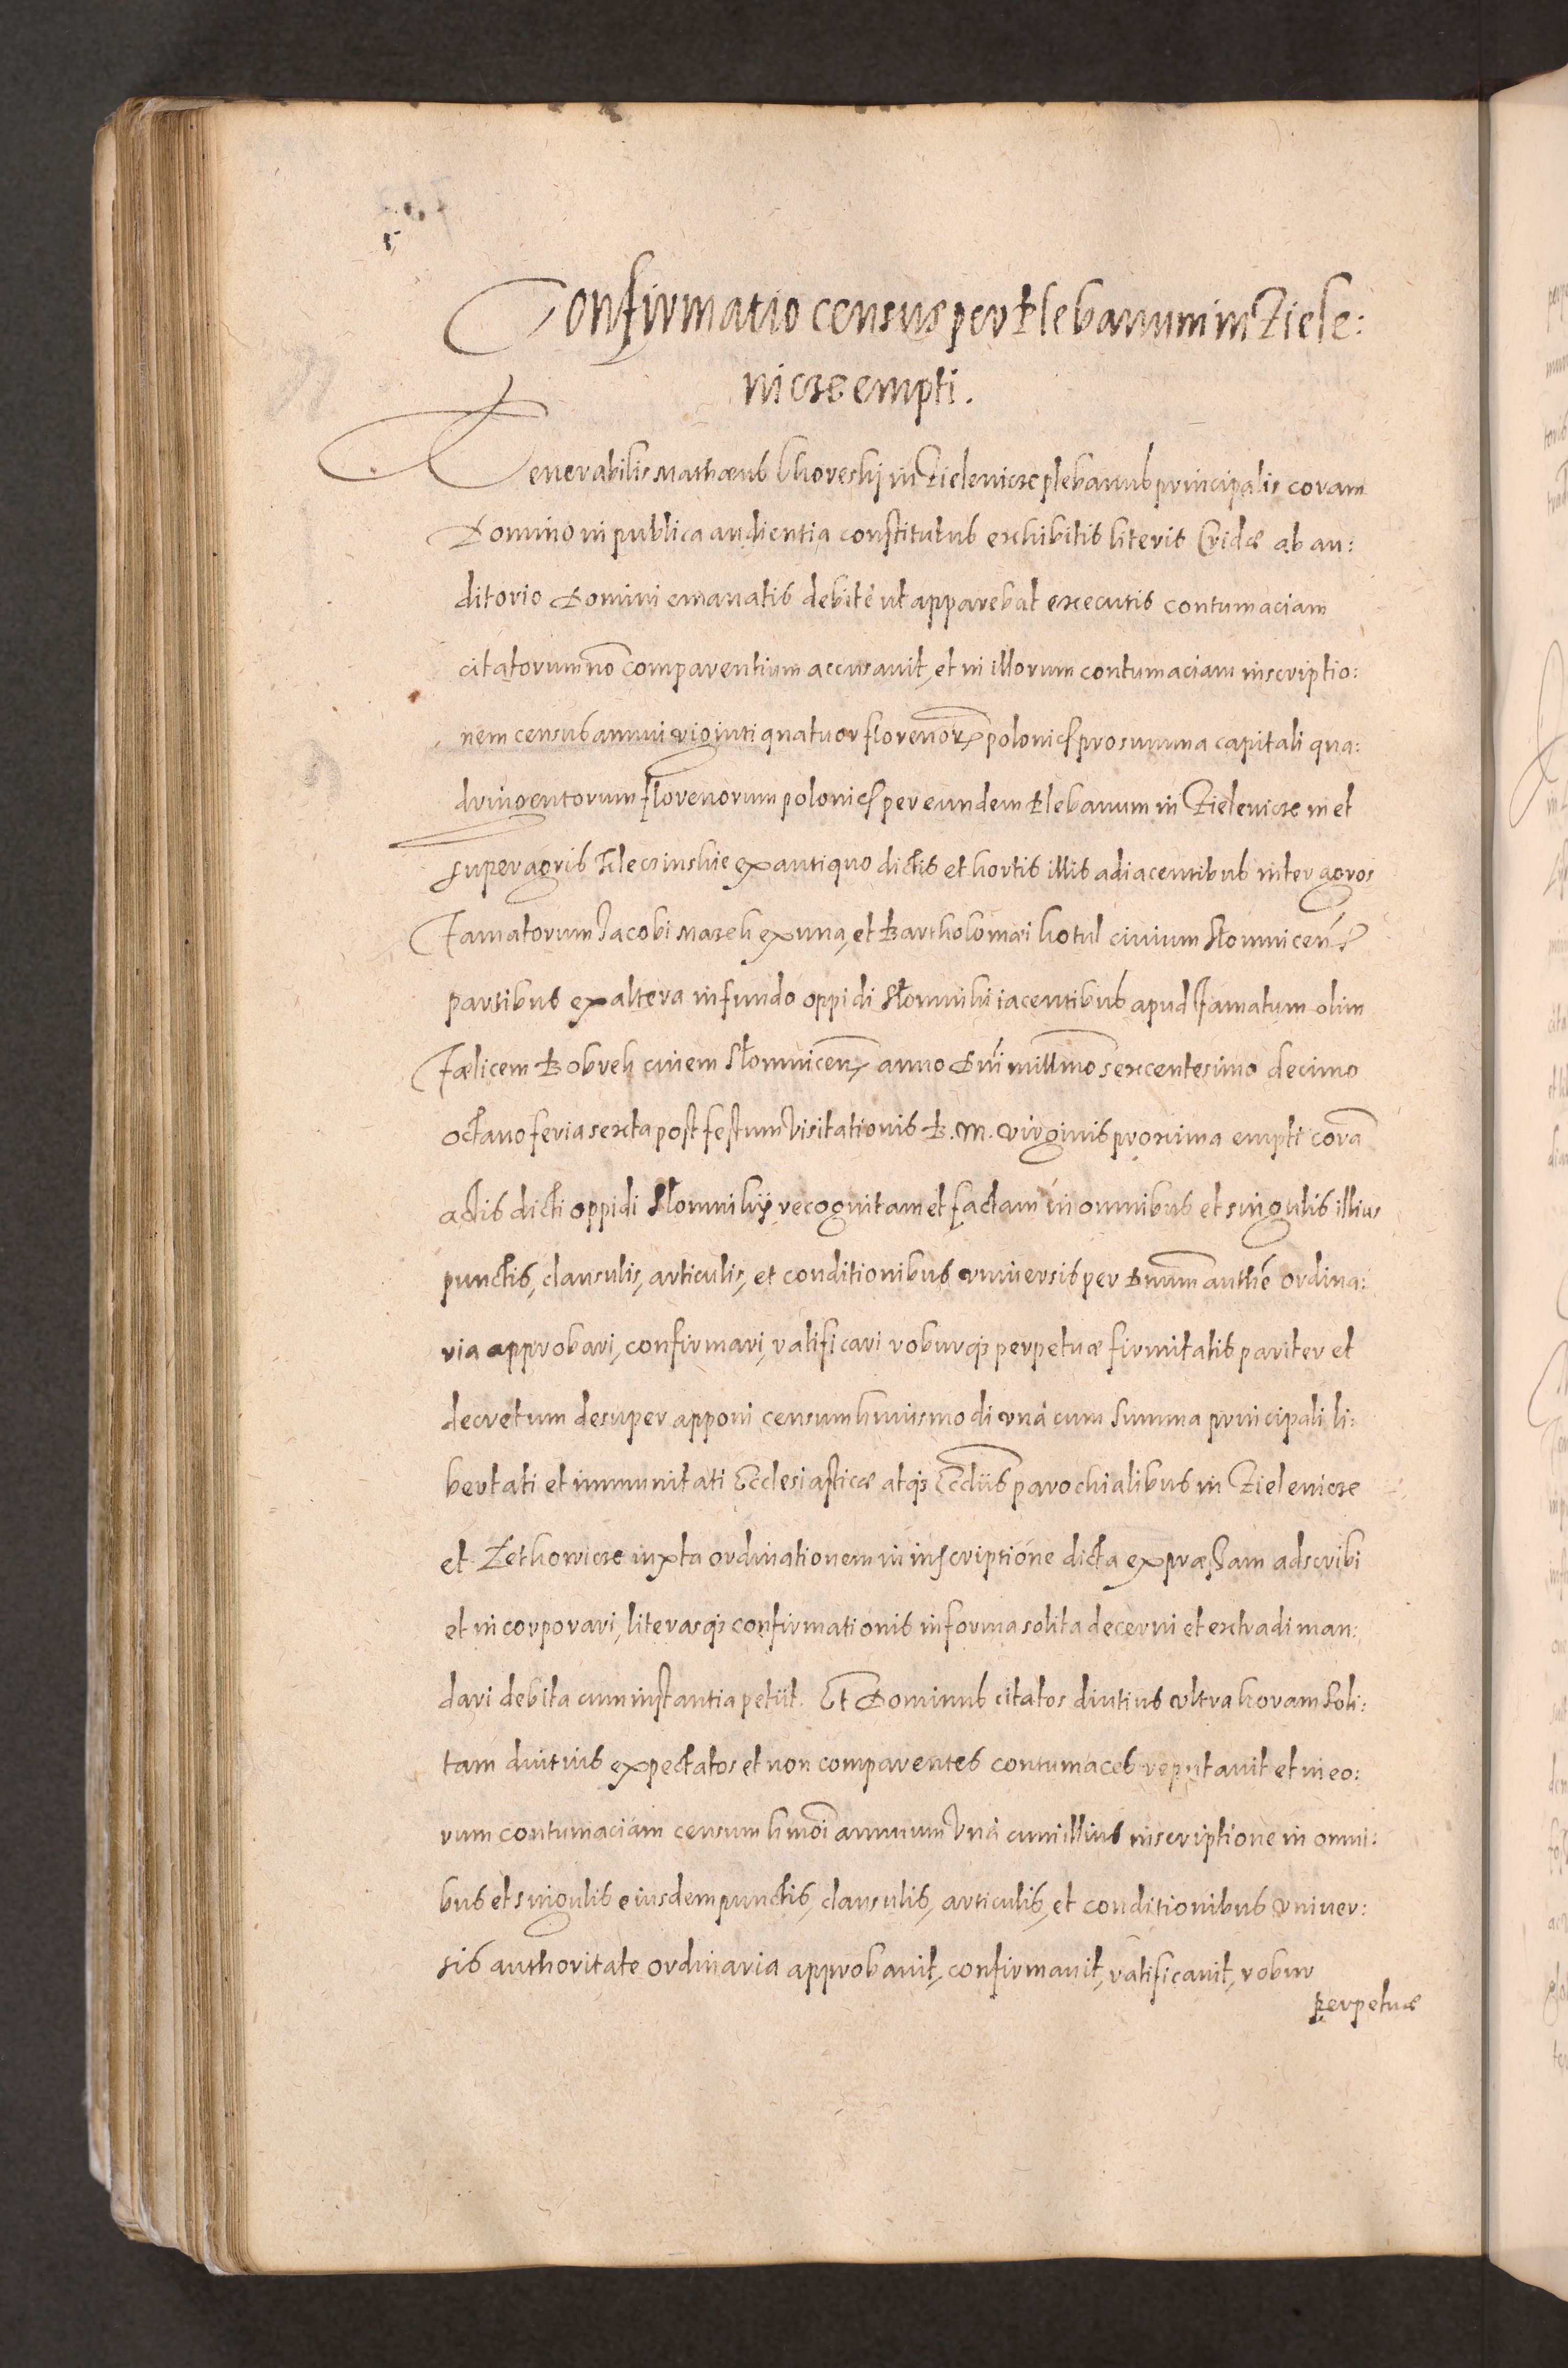 Confirmatio census per Plebanum in Ziele:
nicze empti.
Venerabilis Mathæus Khoreskj in Zielenicze plebanus principalis coram
Domino in publica audientia constitutus exhibitis literis Cridæ ab au:
ditorio Domini emanatis debitè ut apparebat executis contumaciam
citatorum nō comparentium accusauit, et in illorum contumaciam inscriptio:
nem census annui viginti quatuor florenorꝝ polonical pro summa capitali qua:
dringentorum florenorum polonical per eundem Plebanum in Zielenicze in et
super agris Kleczinskie ex antiquo dictis et hortis illis adiacentibus inter agros
Famatorum Jacobi Mazek ex una, et Bartholomæi Kotul ciuium Słomnicen̄
partibus ex altera in fundo oppidi Słomniki iacentibus apud Famatum olim
Fælicem Bobrek ciuem Słomnicen̄ anno Dn̄i millm̄o sexcentesimo decimo
octauo feria sexta post festum Visitationis B. M. Virginis proxima empti corā
actis dicti oppidi Słomnikij recognitam et factam in omnibus et singulis illius
punctis, clausulis, articulis, et conditionibus vniuersis per Dnūm authē ordina:
ria approbari, confirmari, ratificari roburq3 perpetuæ firmitatis pariter et
decretum desuper apponi censum huiusmodi vnà cum summa principali li:
bertati et immunitati Ecclesiasticæ atq3 Eccliis parochialibus in Zielenicze
et Zethowicze iuxta ordinationem in inscriptione dicta expræssam adscribi
et incorporari, literasq3 confirmationis in forma solita decerni et extradi man:
dari debita cum instantia petiit. Et Dominus citatos diutius vltra horam soli:
tam diutius expectatos et non comparentes contumaces reputauit et in eo:
rum contumaciam censum hmōi annuum vnà cum illius inscriptione in omni:
bus et singulis eiusdem punctis, clausulis, articulis, et conditionibus vniuer:
sis authoritate ordinaria approbauit, confirmauit, ratificauit, robur
perpetuæ